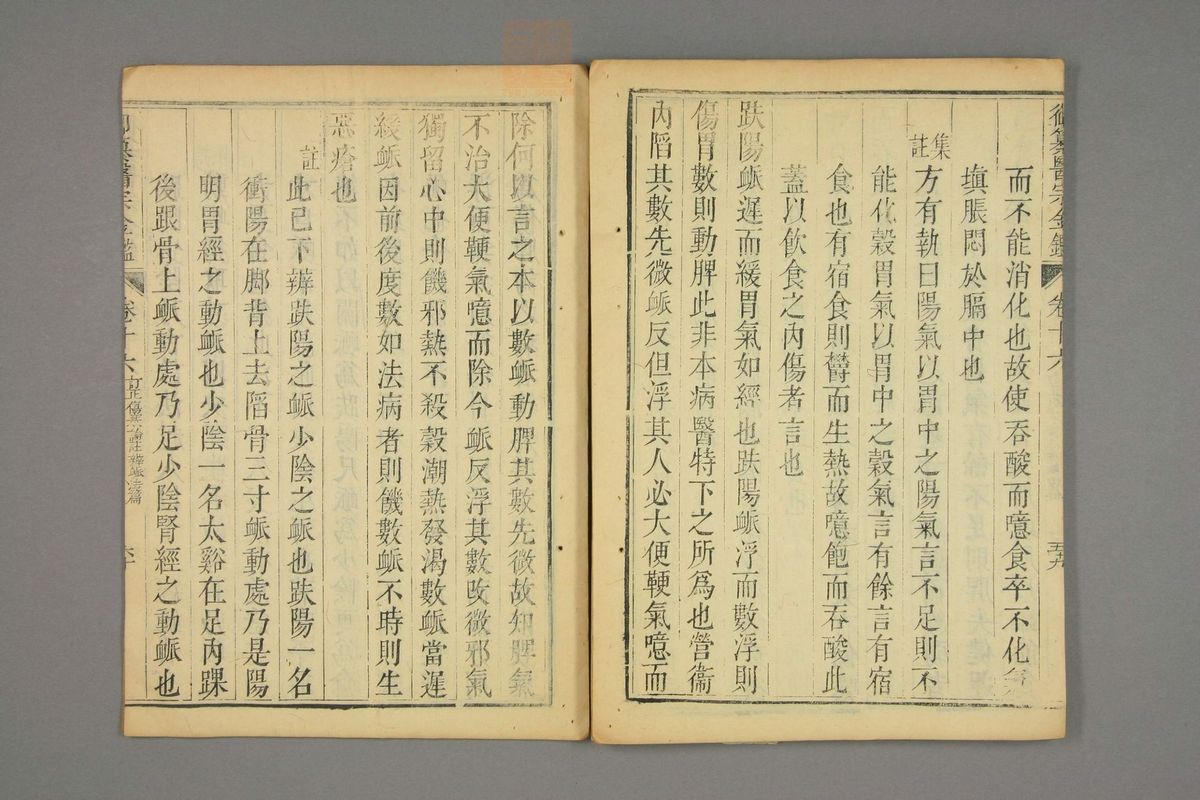 御纂醫宗金鑑 卷十六 五十九
而不能消化也故使吞酸而噫食卒不化氣
塡脹悶於膈中也
集註
方有執曰陽氣以胃中之陽氣言不足則不
能化穀胃氣以胃中之穀氣言有餘言有宿
食也有宿食則鬱而生熱故噫飽而吞酸此
蓋以飲食之內傷者言也
趺陽䘑遲而緩胃氣如經也趺陽䘑浮而數浮則
傷胃數則動脾此非本病醫特下之所爲也營衞
內陷其數先微䘑反但浮其人必大便鞕氣噫而
除何以言之本以數䘑動脾其數先微故知脾氣
不治大便鞕氣噫而除今䘑反浮其數改微邪氣
獨留心中則饑邪熱不殺穀潮熱發渴數䘑當遲
緩䘑因前後度數如法病者則饑數䘑不時則生
惡瘡也
註
此已下辨趺陽之䘑少陰之䘑也趺陽一名
衝陽在脚背上去陷骨三寸䘑動處乃是陽
明胃經之動䘑也少陰一名太谿在足內踝
後跟骨上䘑動處乃足少陰腎經之動䘑也
御纂醫宗金鑑 卷十六 訂正傷寒論註辨䘑法篇 六十